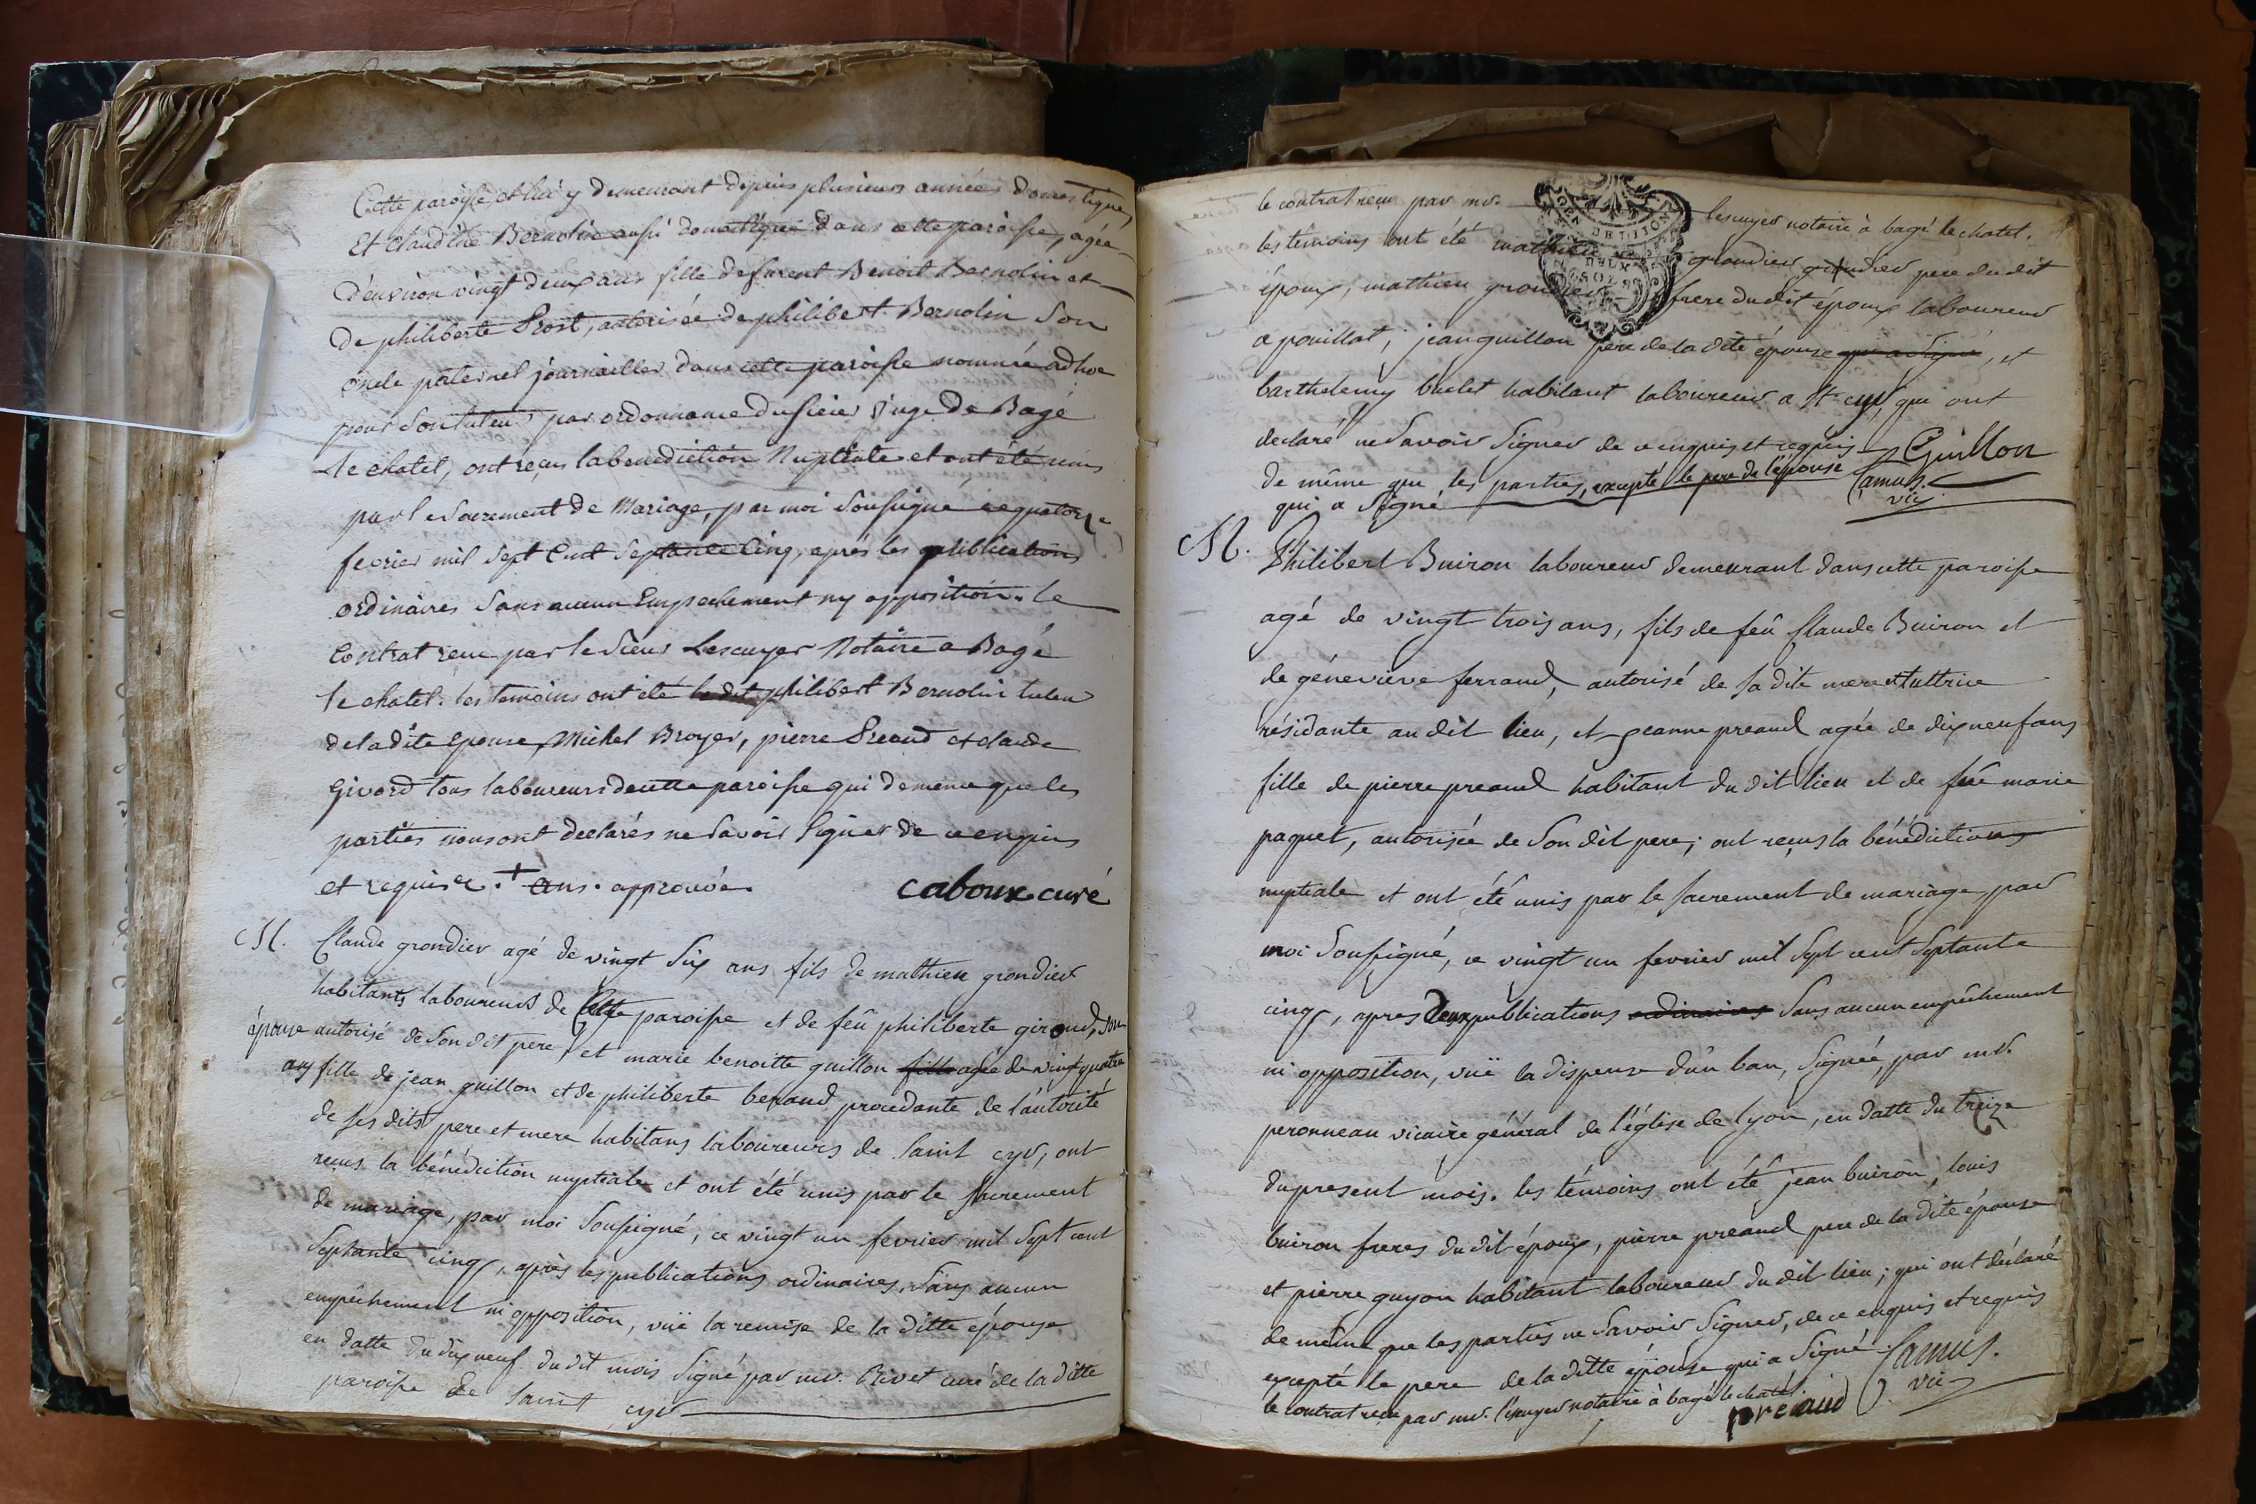 Cette paroisse, et lui y demeurant depuis plusieurs années domestique,
Et Claudine Bernolin aussi domestique dans cette paroisse, agée
d'environ vingt deux ans fille defunt Benoit Bernolin et
de philiberte Prost, autorisée de philibert Bernolin son
oncle paternel journailler dans cette paroisse nommé ad hoc
pour son tuteur par ordonnance du sieur Juge de Bagé
le chatel, ont reçus la benediction Nuptiale et ont été unis
par le sacrement de Mariage, par moi soussigné ce quatorze
fevrier mil sept Cent Septante Cinq, aprés les publications
ordinaires sans aucun Empechement ny opposition. le
Contrat reçu par le Sieur Lescuyer Notaire a Bagé
le chatel. les temoins ont été le dit philibert Bernolin tuteur
de la dite épouse, Michel Broyer, pierre Preaud et claude
Givord tous laboureurs de cette paroisse qui de meme que les
parties nous ont declarés ne savoir signer de ce enquis
et requis &. + ans. approuvée.
caboux curé
M. Claude grondier agé de vingt six ans fils de mathieu grondier
habitants laboureurs de cette paroisse et de feû philiberte giroud, son
épouse autorisé de son dit pere, et marie benoitte guillon fille agée de vingt quatre
ans fille de jean guillon et de philiberte beraud procedante de l'autorité
de ses dits pere et mere habitans laboureurs de saint cyr, ont
reçus la bénédiction nuptiale et ont été unis par le sacrement
de mariage, par moi soussigné, ce vingt un fevrier mil sept cent
septante cinq, après les publications ordinaires, sans aucun
empêchement ni opposition, vüe la remise de la ditte épouse
en datte du dix neuf du dit mois signé par mr. Rivet curé de la ditte
paroisse de saint cyr
le contrat reçu par mr. lescuyer notaire à bagé le chatel.
les témoins ont été mathieu grondier grondier pere du dit
époux, mathieu grondier frere du dit époux laboureur
a pouillat, jean guillon pere de la dite épouse qui a signé, et
barthelemy buclet habitant laboureur a st cyr, qui ont
declaré ne savoir signer de ce enquis et requis
de même que les parties, excepté le pere de l'épouse
qui a signé
Guillon
Camus.
vic
M. Philibert Buiron laboureur demeurant dans cette paroisse
agé de vingt trois ans, fils de feû Claude Buiron et
de géneviève ferrand, autorisé de sa dite mere et tuttrice
résidante au dit lieu, et jeanne preaud agée de dix neuf ans
fille de pierre preaud habitant du dit lieu et de fûe marie
paquet, autorisée de son dit pere; ont reçus la bénédiction
nuptiale et ont été unis par le sacrement de mariage, par
moi soussigné, ce vingt un fevrier mil sept cent septante
cinq, apres deux publications ordinaires sans aucun empêchement
ni opposition, vüe la dispense d'un ban, signée, par mr.
peronneau vicaire général de l'église de lyon, en datte du treize
du present mois. les témoins ont été jean buiron, louis
buiron freres du dit époux, pierre preaud pere de la dite épouse
et pierre guyon habitant laboureur du dit lieu; qui ont déclaré
de même que les parties ne savoir signer, de ce enquis et requis
excepté le pere de la ditte épouse qui a signé.
le contrat reçu par mr. l'ecuyer notaire à bagé le chatel.
Camus.
vic
preaud